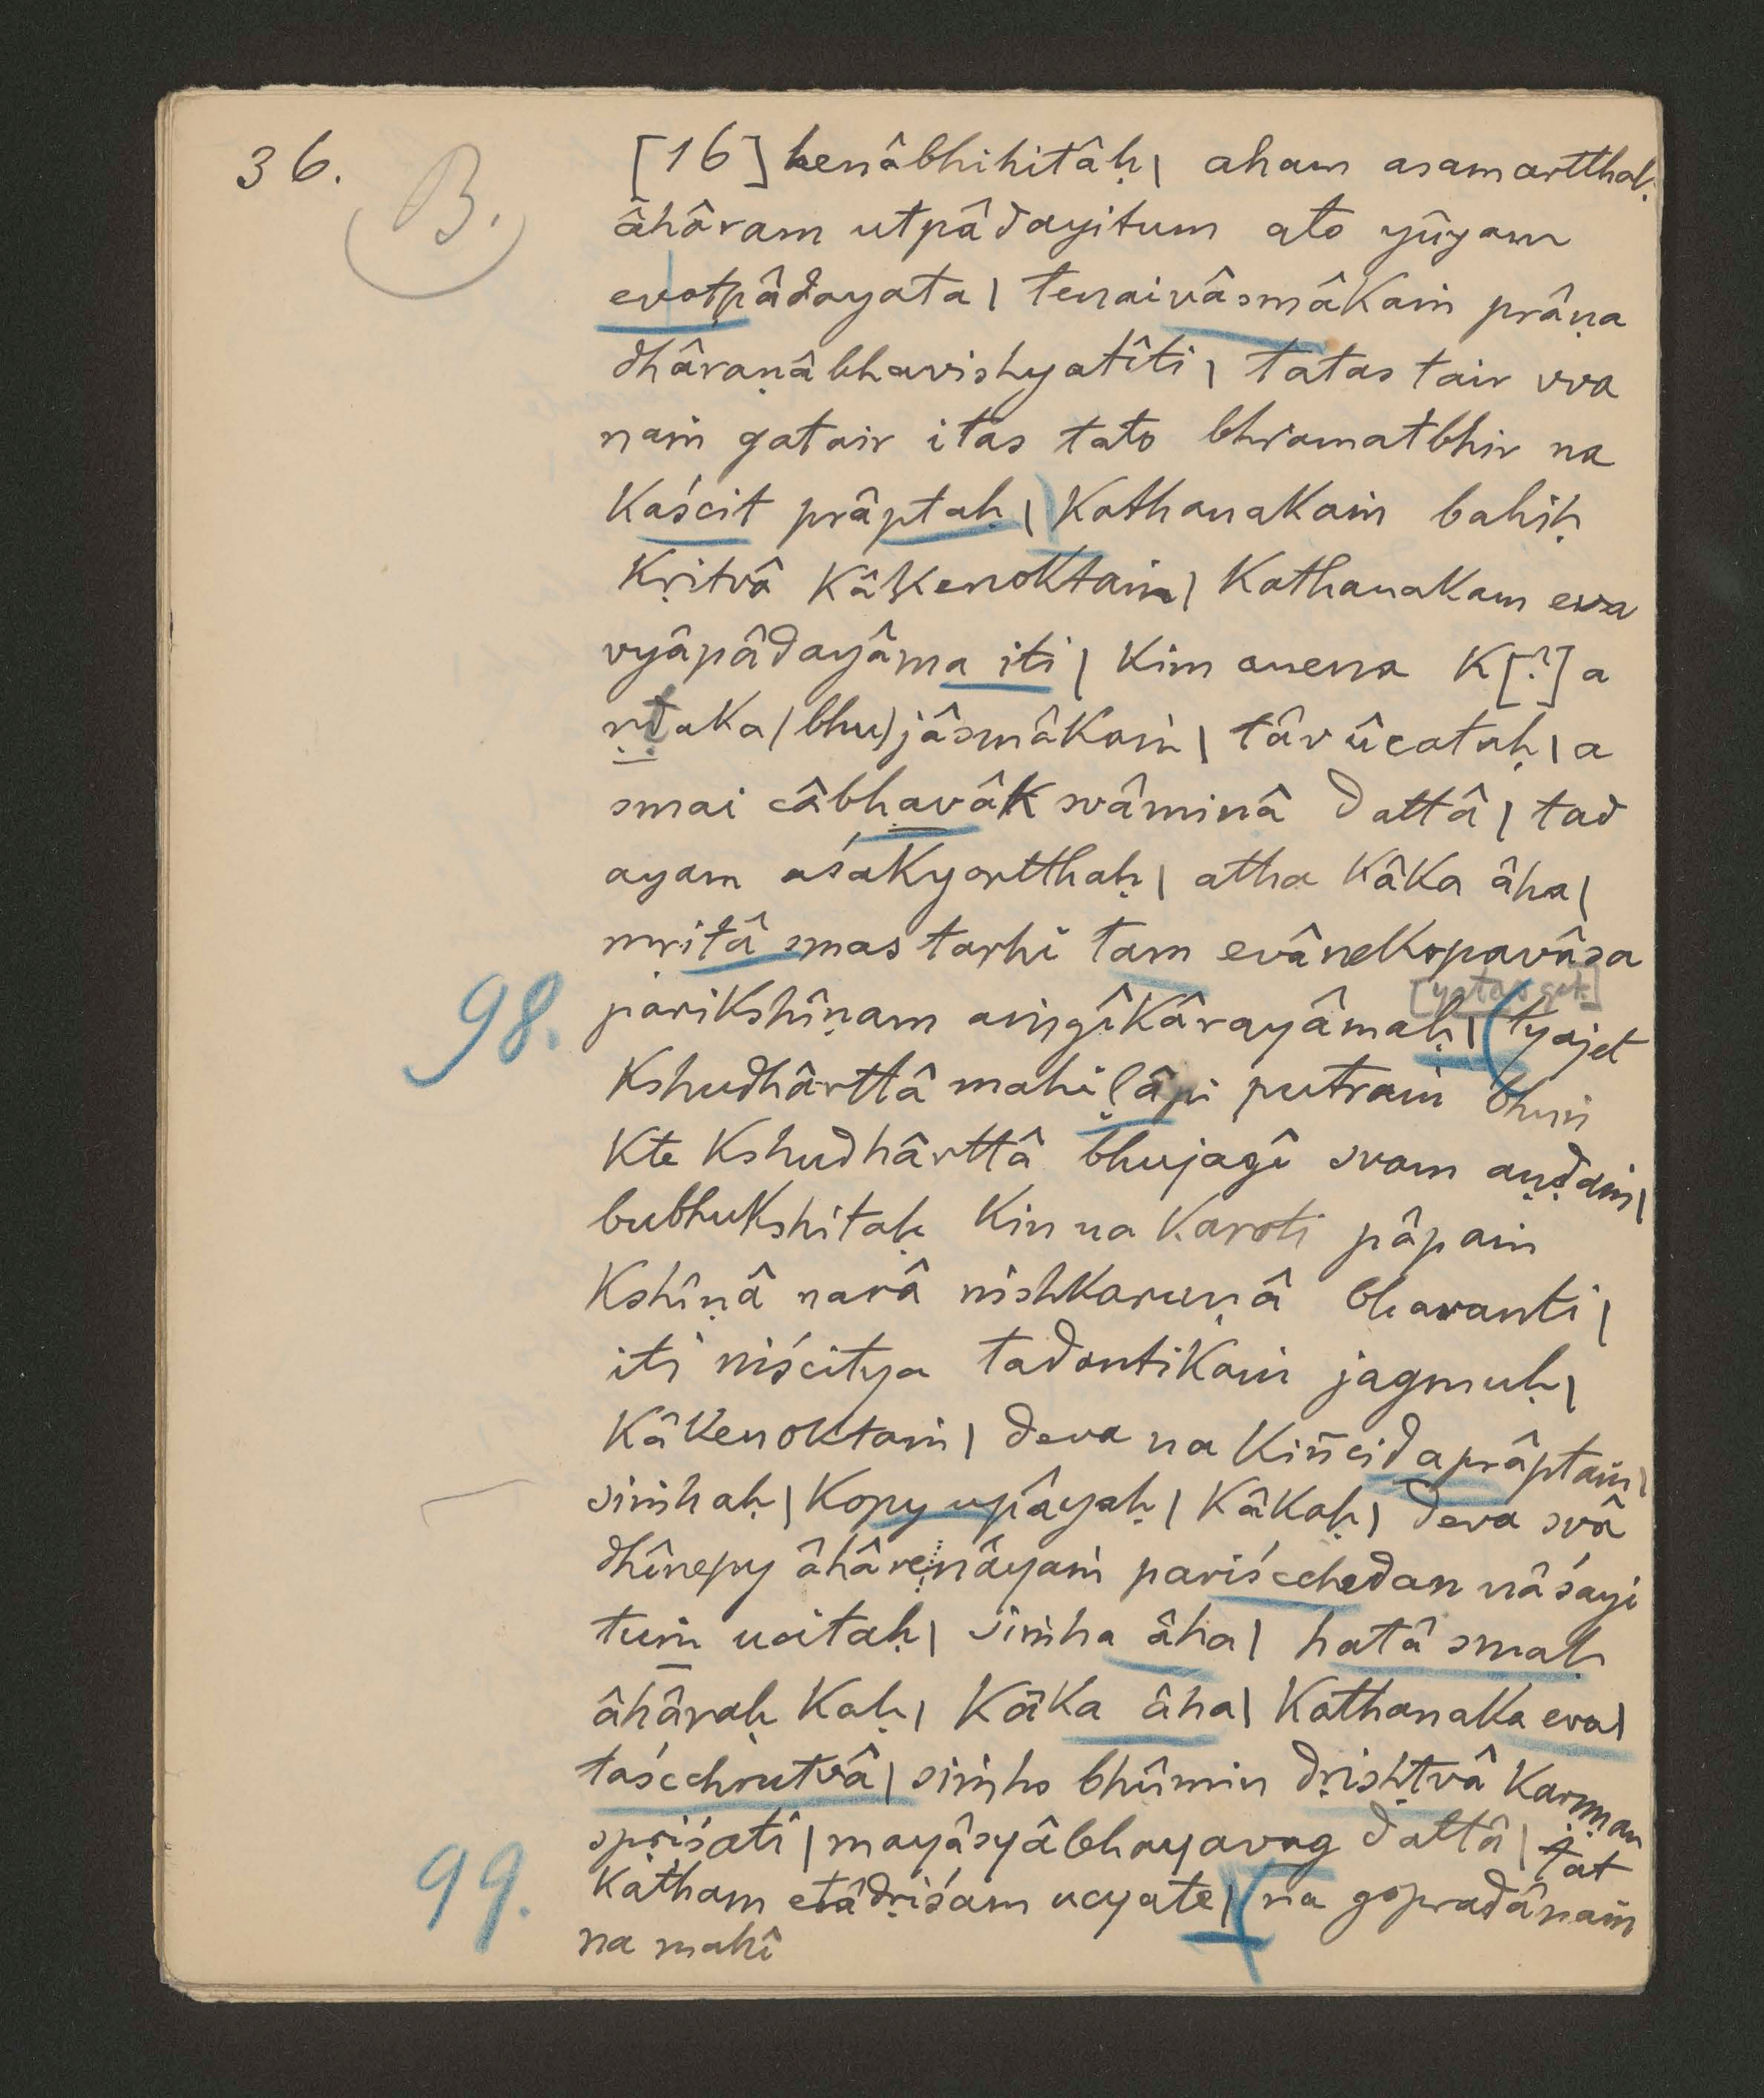 36.
B.
[16] kenâbhihitâḥ| aham asamartthaḥ
âhâram utpâdayitum ato yûyam
evotpâdayata| tenaivâsmâkaṁ prâṇa
dhâraṇâ bhavishyatîti| tatas tair vva
naṁ gatair itas tato bhramatbhir na
kaścit prâptaḥ| kathanakaṁ bahiḥ
kṛitvâ kâkenoktaṁ| kathanakam eva
vyâpâdayâma iti| kim anena k[?]a
ṇṭaka(bhu)jâsmâkaṁ| tâv ûcatuḥ| a
smai câbhavâk svâminâ dattâ| tad
ayam aśakyortthaḥ| atha kâka âha|
mṛitâ smas tarhi tam evânekopavâsa
[yatas get.]
98. parikshîṇam aṁgîkârayâmaḥ| tyajet
kshudhârttâ mahiḷâpi putraṁ bhuṁ
kte kshudhârttâ bhujagî svam aṇḍaṁ|
bubhukshitaḥ kin na karoti pâpaṁ
kshîṇâ narâ nishkaruṇâ bhavanti|
iti niścitya tadantikaṁ jagmuḥ|
kâkenoktaṁ| deva na kiñcid aprâptaṁ|
siṁhaḥ| kopy upâyaḥ| kâkaḥ| deva svâ
dhînepy âhâreṇâyaṁ pariścchedan nâśayi
tuṁ ucitaḥ| siṁha âha| hatâ smaḥ
âhâraḥ kaḥ| kâka âha| kathanaka eva|
taścchrutvâ| siṁho bhûmin dṛishṭvâ karṇṇan
spṛiśati| mayâsyâbhayavag dattâ| tat
99. katham etâdṛiśam ucyate| na gopradânaṁ
na mahî